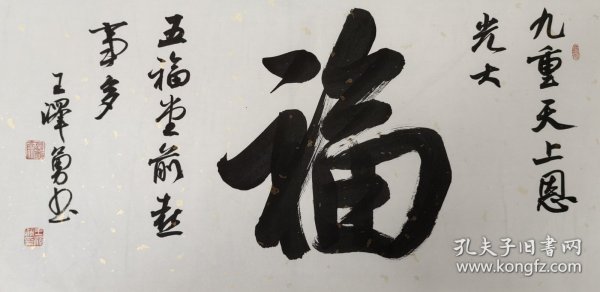 九重天上恩
光大
福
五福堂前喜
事多
王晖勇书
孔夫子旧书网
www.kongfz.com